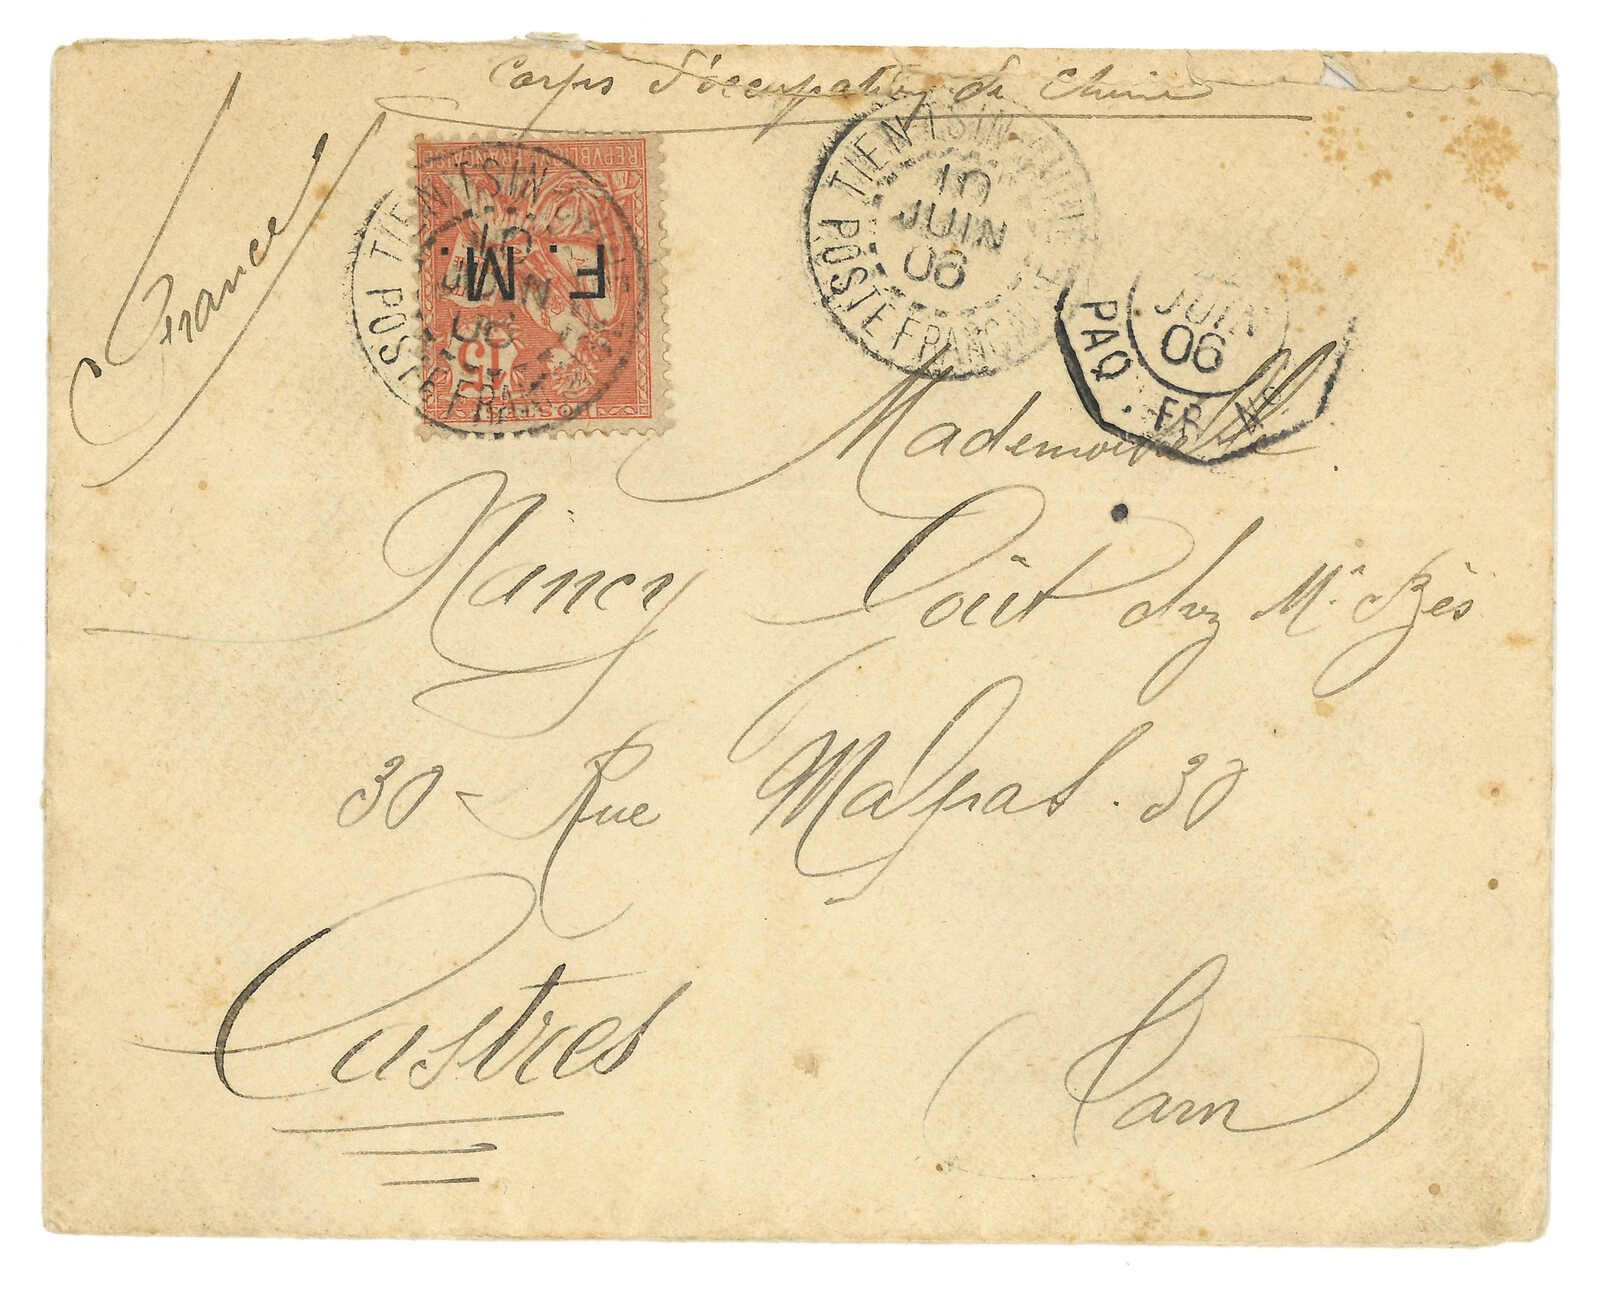 Corps d'occupation de Chine
France
REPVBLIQVE FRANÇAISE
F. M.
15
POSTES
TIEN-TSIN
10
JUIN
06
POSTE FRANÇ
TIEN-TSIN
10
JUIN
06
POSTE FRANÇ
JUIN
06
PAQ. FR. Nº
Mademoiselle
Nancy Coût chez Mr
30 - Rue Malpas. 30
Castres
(Tarn)